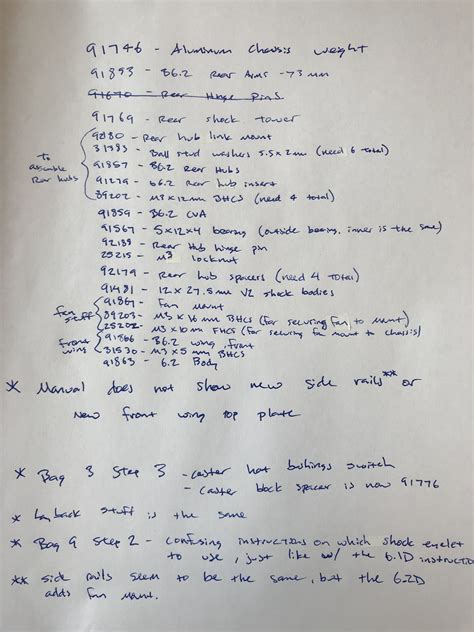 91746 - Aluminum Chassis weight
91853 - B6.2 Rear Arms - 73mm
91670 - Rear Hinge Pins
91769 - Rear shock tower
9280 - Rear hub link mount
31383 - Ball stud washers 5.5x2mm (need 6 total)
to assemble Rear hubs
91857 - B6.2 Rear Hubs
91279 - B6.2 rear hub insert
89202 - M3x12mm BHCS (need 4 total)
91859 - B6.2 CVA
91567 - 5x12x4 bearing (outside bearing, inner is the same)
92188 - Rear Hub hinge pin
25215 - M3 locknut
92179 - Rear hub spacers (need 4 total)
91481 - 12x27.5mm V2 shock bodies
fan stuff
91867 - Fan mount
89203 - M3x16mm BHCS (for securing fan, to mount)
25202 - M3x10mm FHCS (for securing fan mount to chassis)
front wing
91866 - B6.2 wing, front
31530 - M3x5mm BHCS
91863 - 6.2 Body
* Manual does not show new side rails** or
New front wing top plate
* Bag 3 Step 3 - caster hat bushings switch
- caster block spacer is now 91776
* Layback stuff is the same
* Bag 9 Step 2 - confusing instructions on which shock eyelet
to use, just like w/ the 6.1D instructions
** side rails seem to be the same, but the 6.2D
adds fan mount.